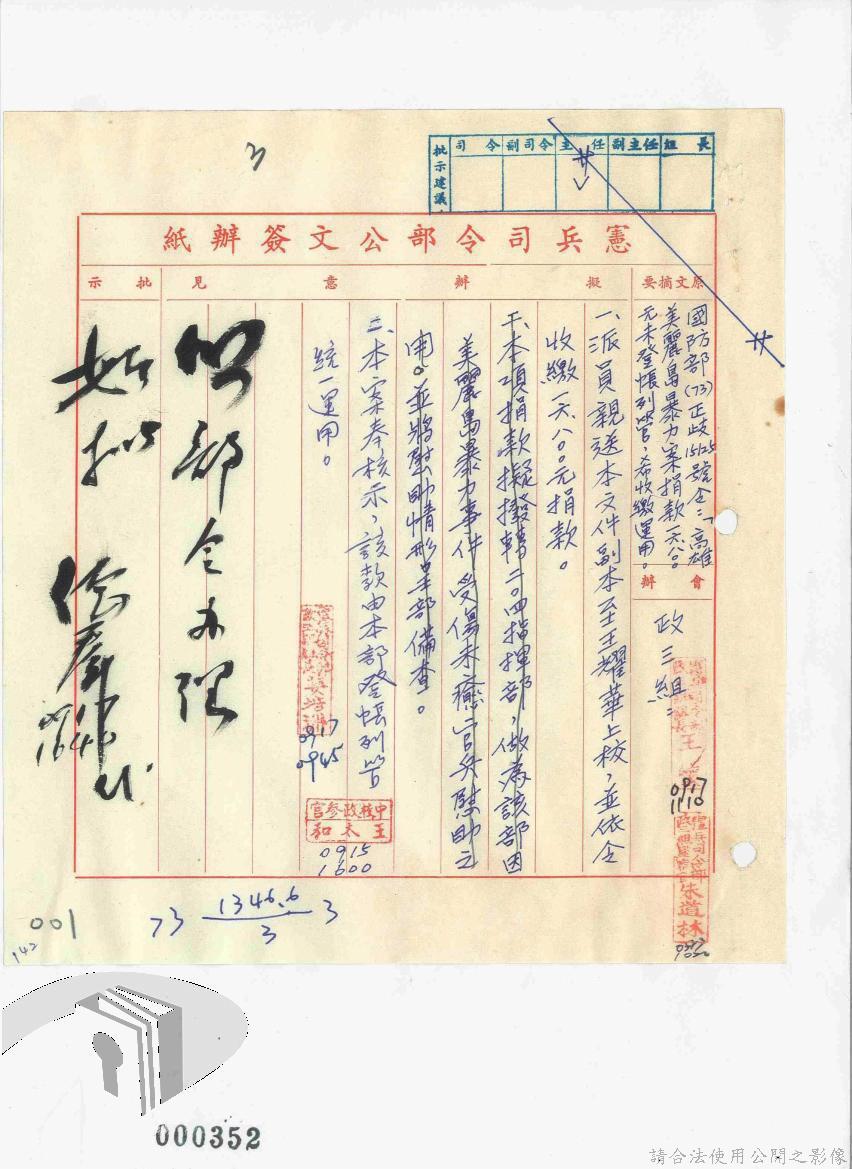 批示建議
司令
副司令
主任
副主任
組長
憲兵司令部公文簽辦紙
原文摘要
擬辦意見
批示
國防部(73)正歧15125號令:「高雄
美麗島暴力案捐款一六八○○
元未登帳列管,希收繳運用。
會辦
政三組:
一、派員親送本文件副本至王耀華上校,並依令
收繳一六八○○元捐款。
二、本項捐款擬撥轉二○四指揮部,做為該部因
美麗島暴力事件受傷未癒官兵慰助之
用。並將慰助情形呈部備查。
二、本案奉核示,該款由本部登帳列管
統一運用。
照部令辦理
如擬
1640
0917
0945
中校政參官
王木和
0915
1600
0917
1110
朱道林
73 1346.6/3 3
001
142
000352
請合法使用公開之影像